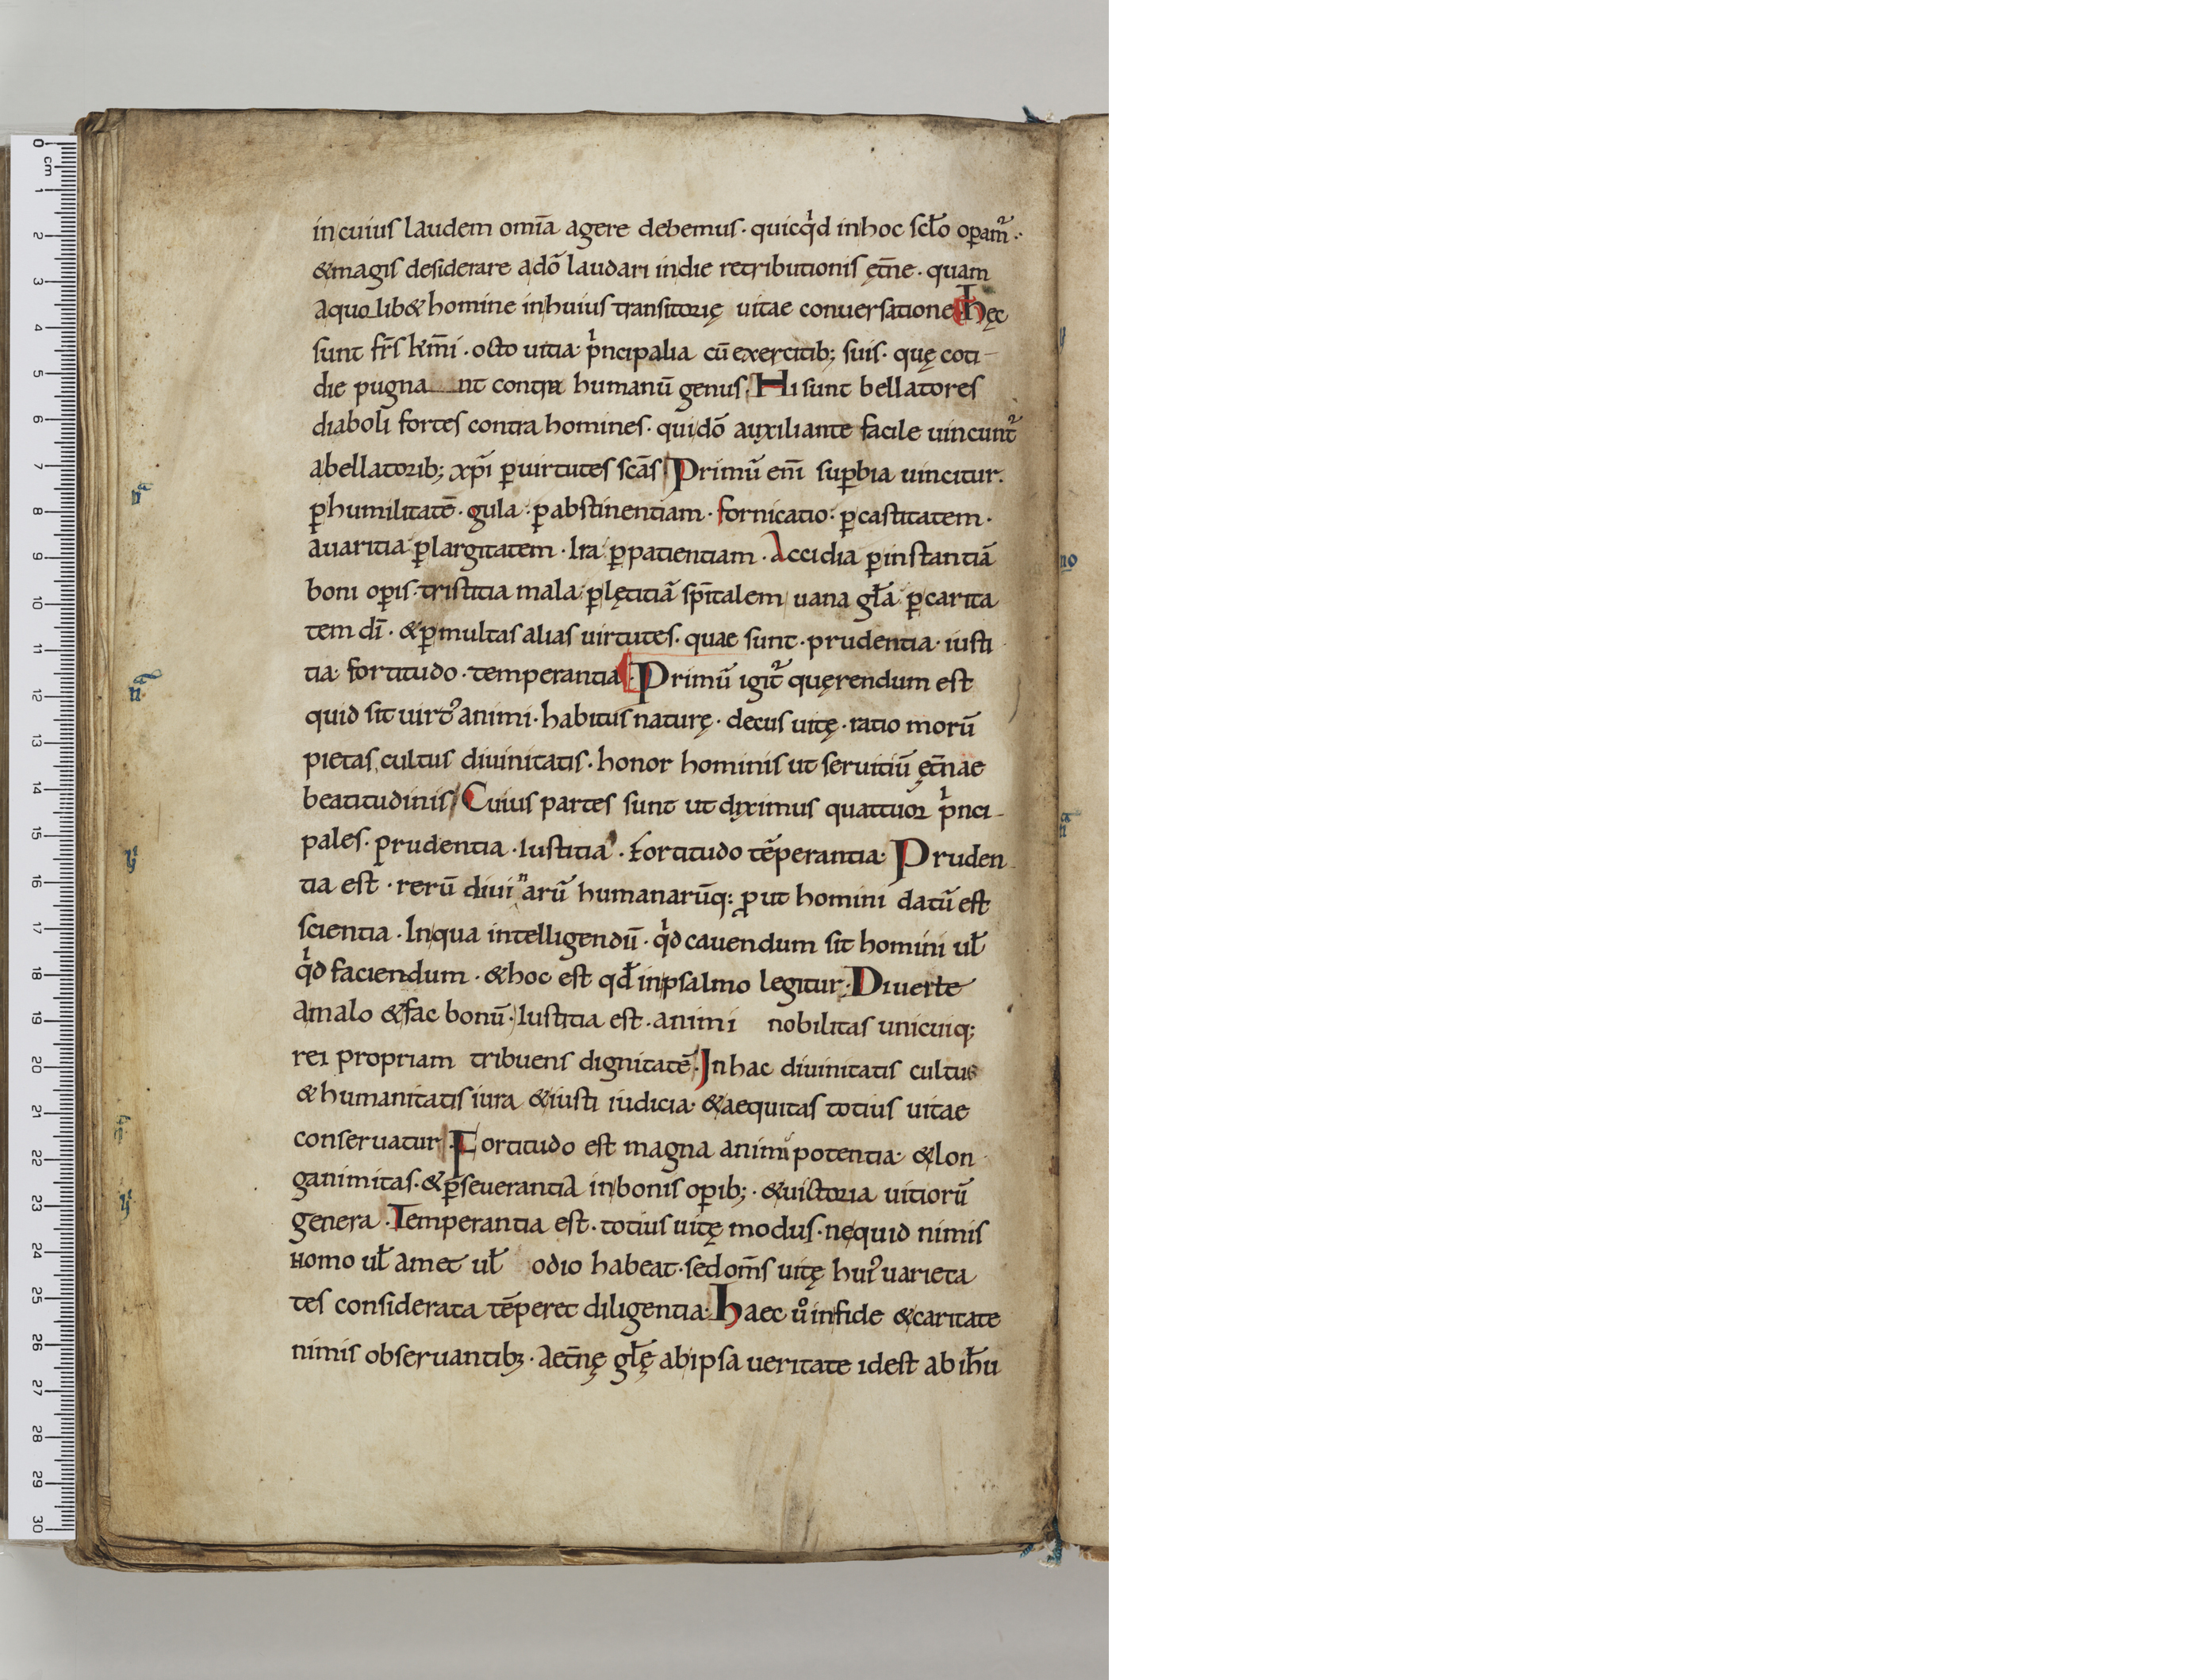 in cuius laudem om̄ia agere debemus · quicq̍d in hoc scl̄o op̲am᷑ ·
& magis desiderare a dō laudari in die retributionis ęt̄ne · quam
a quolib& homine in huius transitorię uitae conuersatione · hęc
sunt fr̄s km̄i · octo uitia p̍ncipalia cū exercitib; suis · quę coti-
die pugnant contra humanū genus · Hi sunt bellatores
diaboli fortes contra homines · qui dō auxiliante facile uincunt᷑
a bellatorib; xp̄i ꝑ uirtutes scās · Primū eni̅ suꝑbia uincitur ·
ꝑ humilitatē · gula · ꝑ abstinentiam · fornicatio · ꝑ castitatem ·
auaritia ꝑ largitatem · Ira ꝑ patientiam · Accidia ꝑ instantiā
boni oꝑis · tristitia mala ꝑ lętitiā sp̄italem uana gl̄a · ꝑ carita
tem dī · & ꝑ multas alias uirtutes · quae sunt · prudentia · iusti
tia · fortitudo · temperantia · Primū igit᷑ quęrendum est
quid sit uirtꝰ animi · habitus naturę · decus uitę · ratio morū
pietas, cultus diuinitatis · honor hominis ut seruitiū ęt̄nae
beatitudinis / Cuius partes sunt ut diximus quattuor p̍nci-
pales · prudentia · Iustitia · Fortitudo tēperantia · Pruden
tia est · rerū diuinarū humanarūq: ꝓut homini datū est
scientia · In qua intelligendū · q̍d cauendum sit homini ul̄
q̍d faciendum · & hoc est qd̄ in psalmo legitur · Diuerte
a malo & fac bonū · Iustitia est · animi nobilitas unicuiq;
rei propriam tribuens dignitatē · In hac diuinitatis cultus
& humanitatis iura & iusti iudicia · & aequitas totius uitae
conseruatur · Fortitudo est magna animi potentia · & lon
ganimitas · & ꝑseuerantia in bonis oꝑib; · & uictoria uitiorū
genera · Temperantia est · totius uitę modus · ne quid nimis
Homo ul̄ amet ul̄ odio habeat · sed om̄s uitę huiꝰ uarieta
tes considerata tēperet diligentia · haec ů in fide & caritate
nimis obseruantibꝫ · Aet̄nę gl̄ę ab ipsa ueritate id est ab ih̄u
y
no
n̄ª
ii·ª
yⁱ
yⁱ